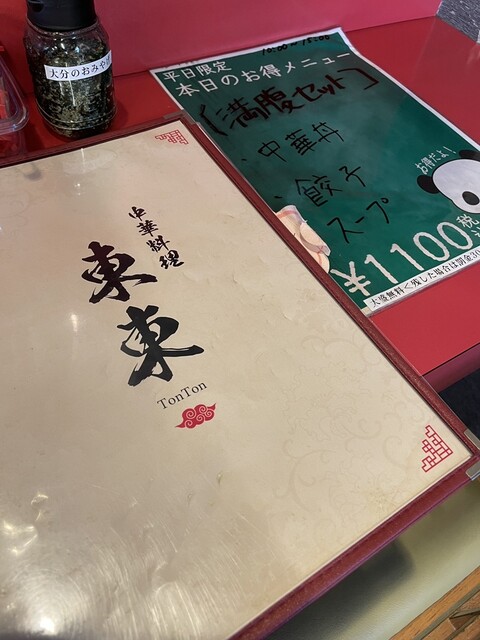 大分のおみや
平日限定 10:00~15:00
本日のお得メニュー
[満腹セット]
・中華丼
・餃子
スープ
お得だよ!
¥1100税
大盛無料<残した場合は罰金30
中華料理
東東
TonTon